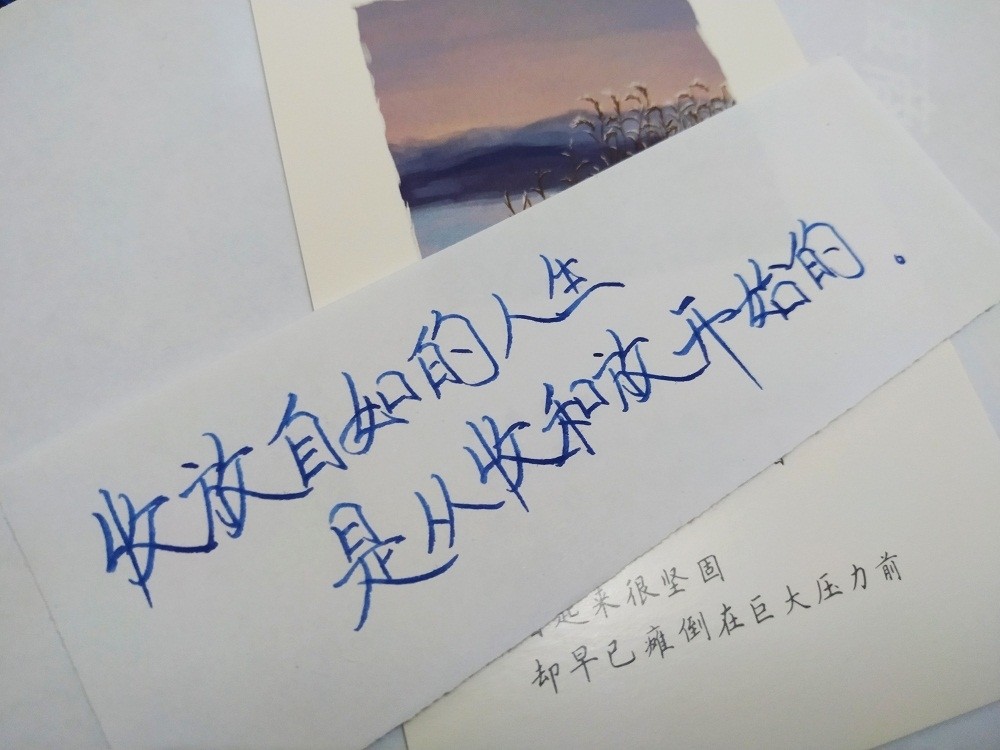 收放自如的人生
是从收和放开始的。
起来很坚固
却早已瘫倒在巨大压力前